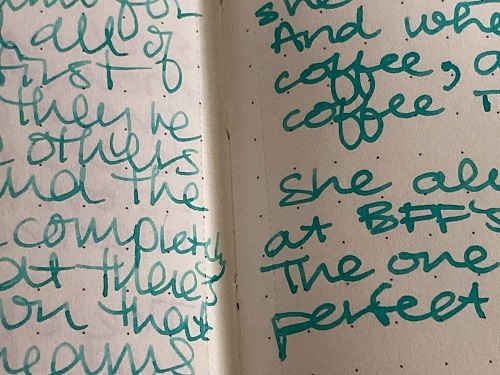 all of
first of
they're
others
and the
completely
at there's
on that
she
And whe
coffee, a
coffee
she alw
at BFF's
The one
perfect